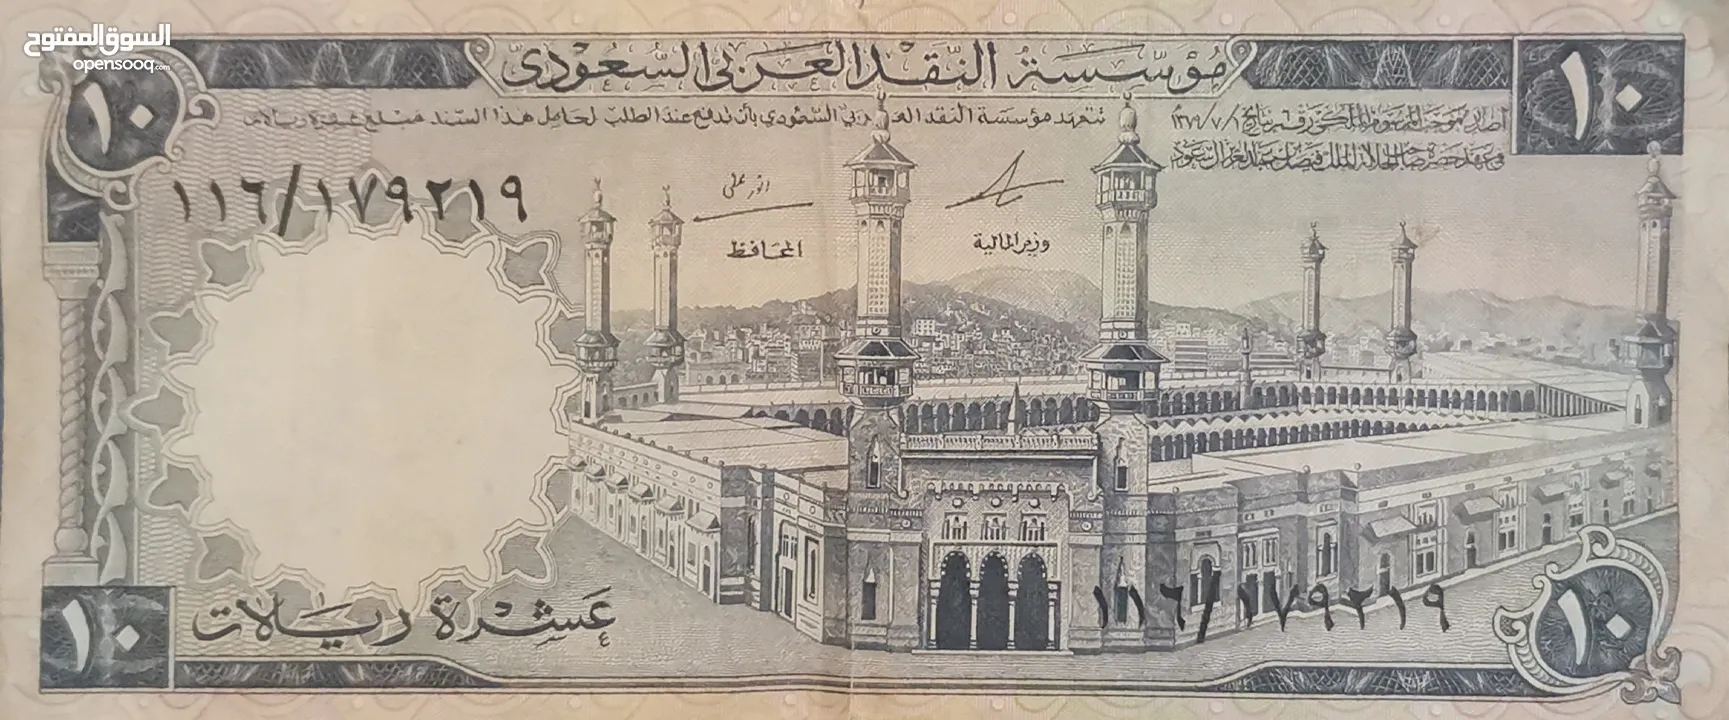 السوق المفتوح
opensooq.com
مؤسسة النقد العربي السعودي
١٠
١٠
تتعهد مؤسسة النقد العربي السعودي بأن تدفع عند الطلب لحامل هذا السند مبلغ عشرة ريالات
أصدر بموجب المرسوم الملكي رقم بتاريخ ١٣٧٩/٧/١
في عهد حضرة صاحب الجلالة الملك فيصل بن عبد العزيز آل سعود
١١٦/١٧٩٢١٩
أنور علي
المحافظ
وزير المالية
١١٦/١٧٩٢١٩
عشرة ريالات
١٠
١٠